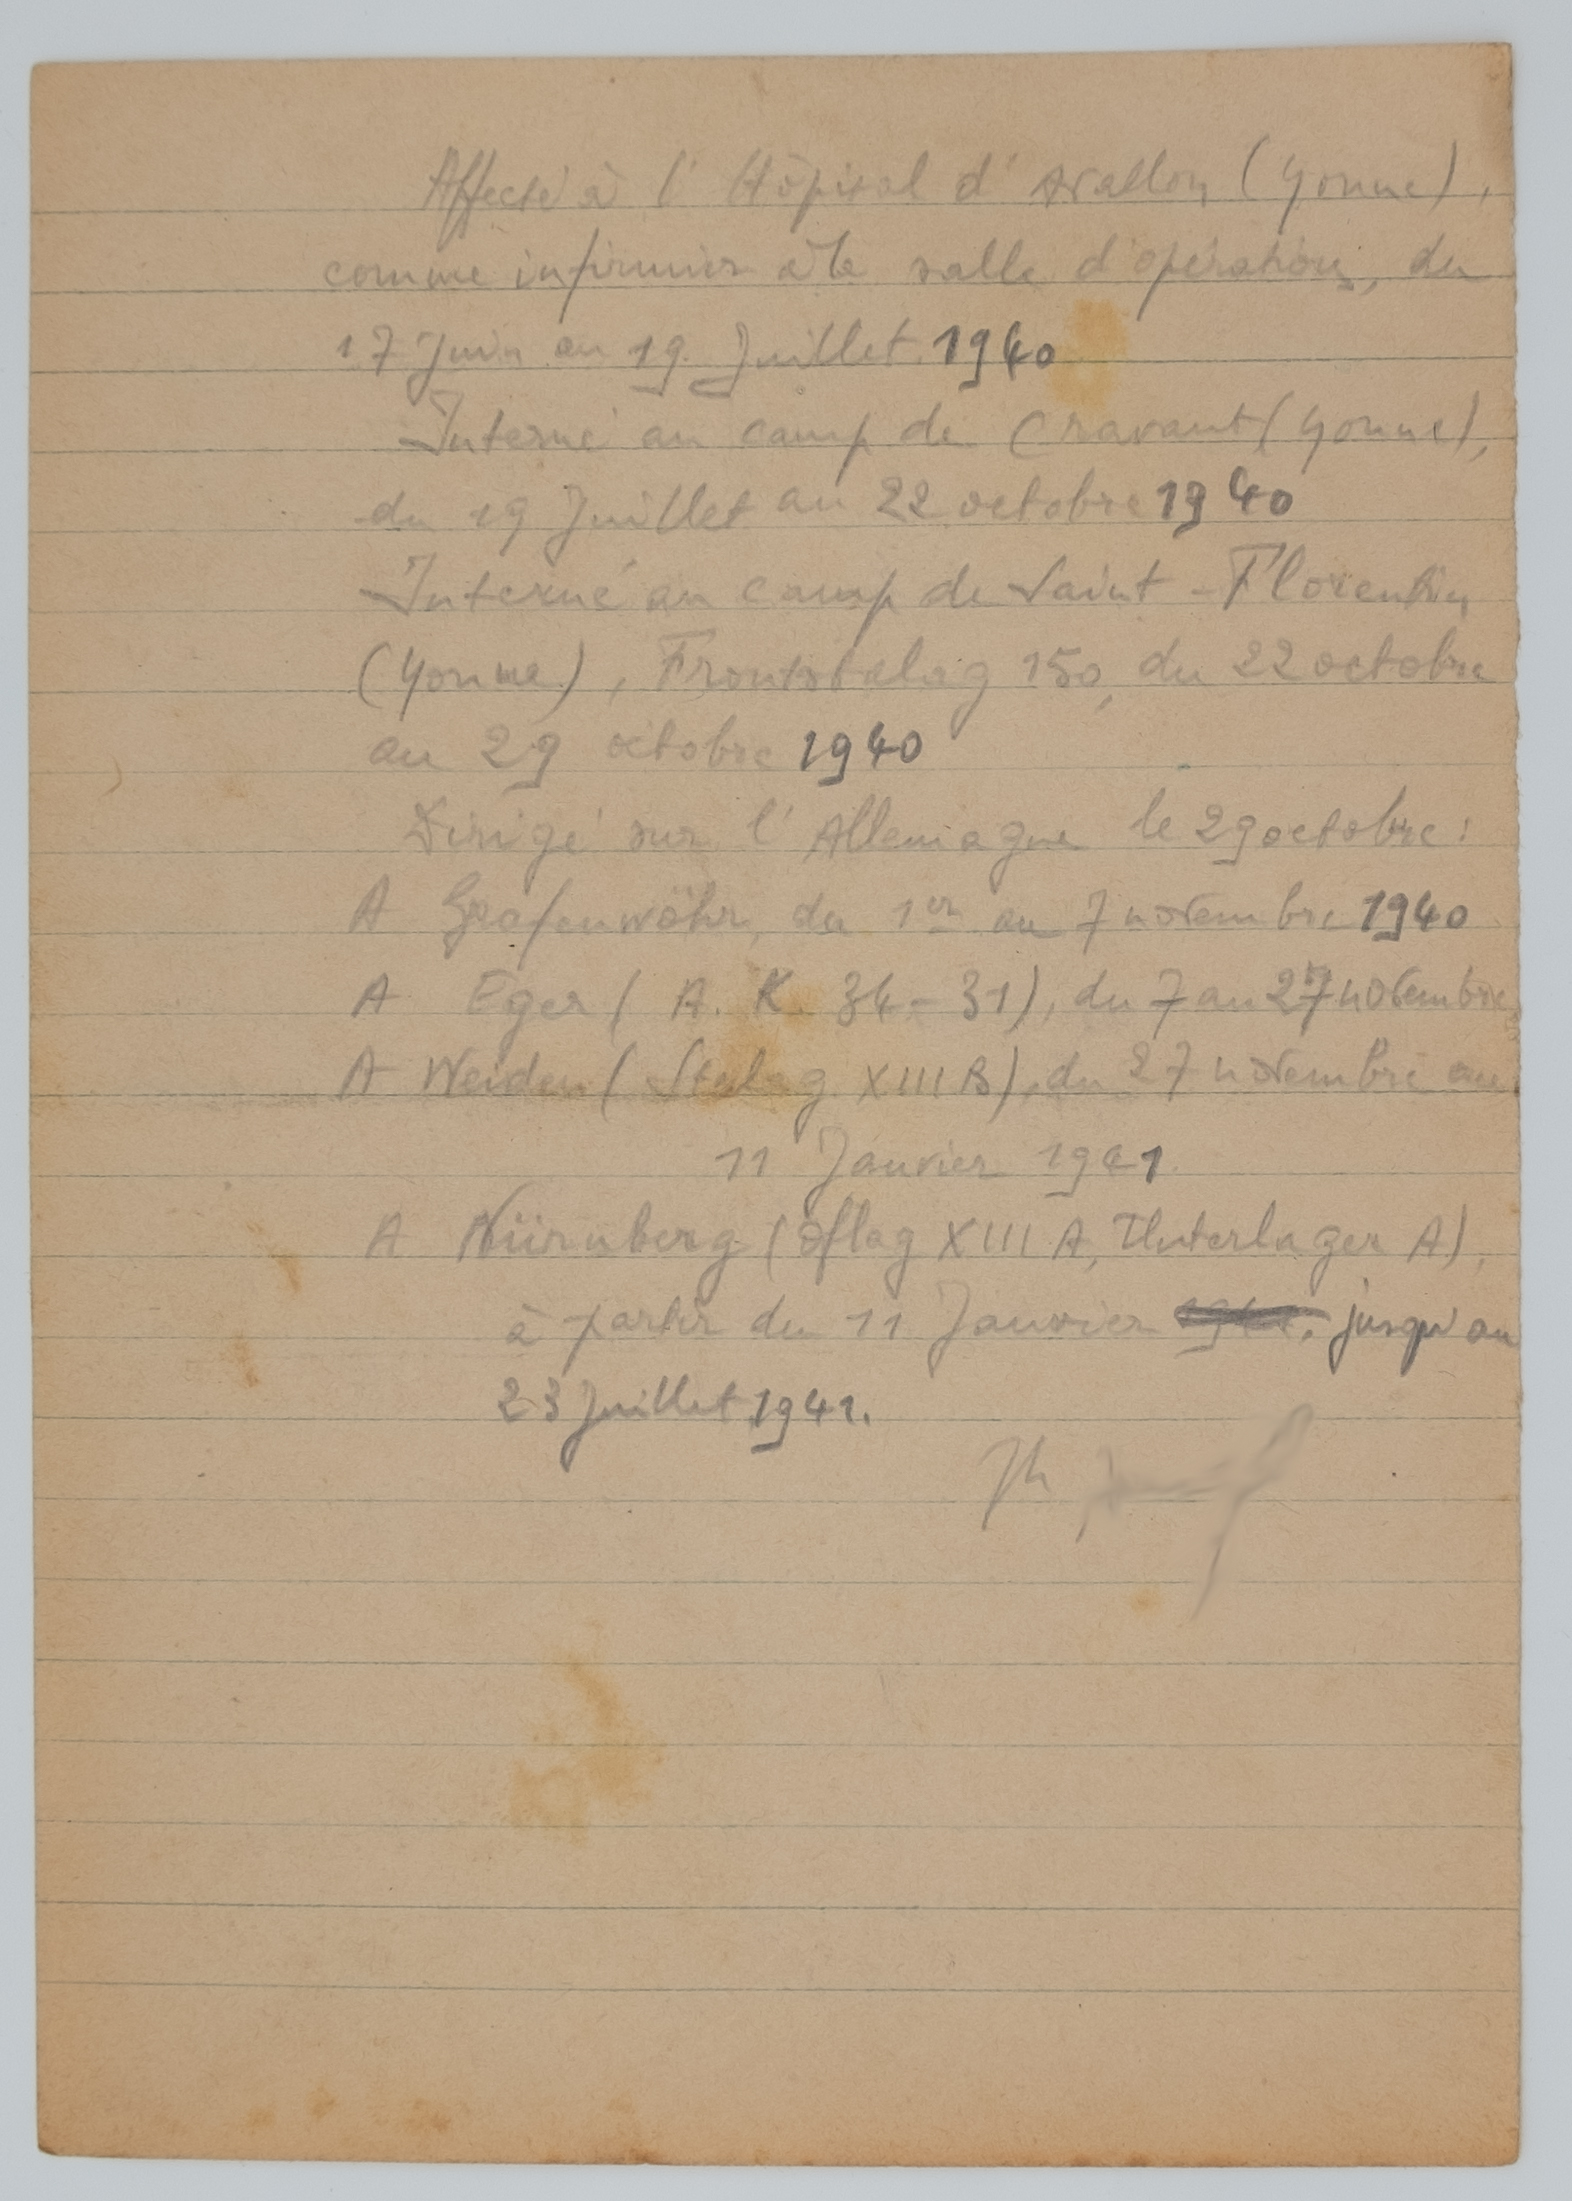 Affecté à l'Hôpital d'Avallon (Yonne),
comme infirmier à la salle d'opérations, du
17 Juin au 19 Juillet 1940
Interné au camp de Cravant (Yonne),
du 19 Juillet au 22 octobre 1940
Interné au camp de Saint-Florentin
(Yonne), Frontstalag 150, du 22 octobre
au 29 octobre 1940
Dirigé sur l'Allemagne le 29 octobre :
A Grafenwöhr, du 1er au 7 novembre 1940
A Eger (A. K. 34-31), du 7 au 27 novembre
A Weiden (Stalag XIII B), du 27 novembre au
11 Janvier 1941
A Nürnberg (Oflag XIII A, Unterlager A),
à partir du 11 Janvier jusqu'au
23 Juillet 1941.